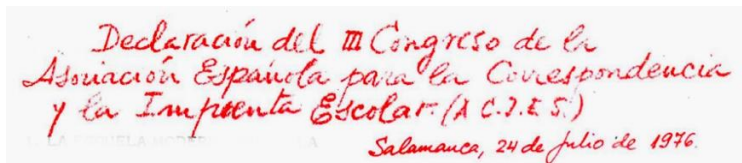 Declaración del III Congreso de la
Asociación Española para la Correspondencia
y la Imprenta Escolar. (A C.I.E S.)
LA ESCUELA MODERNA
Salamanca, 24 de julio de 1976.